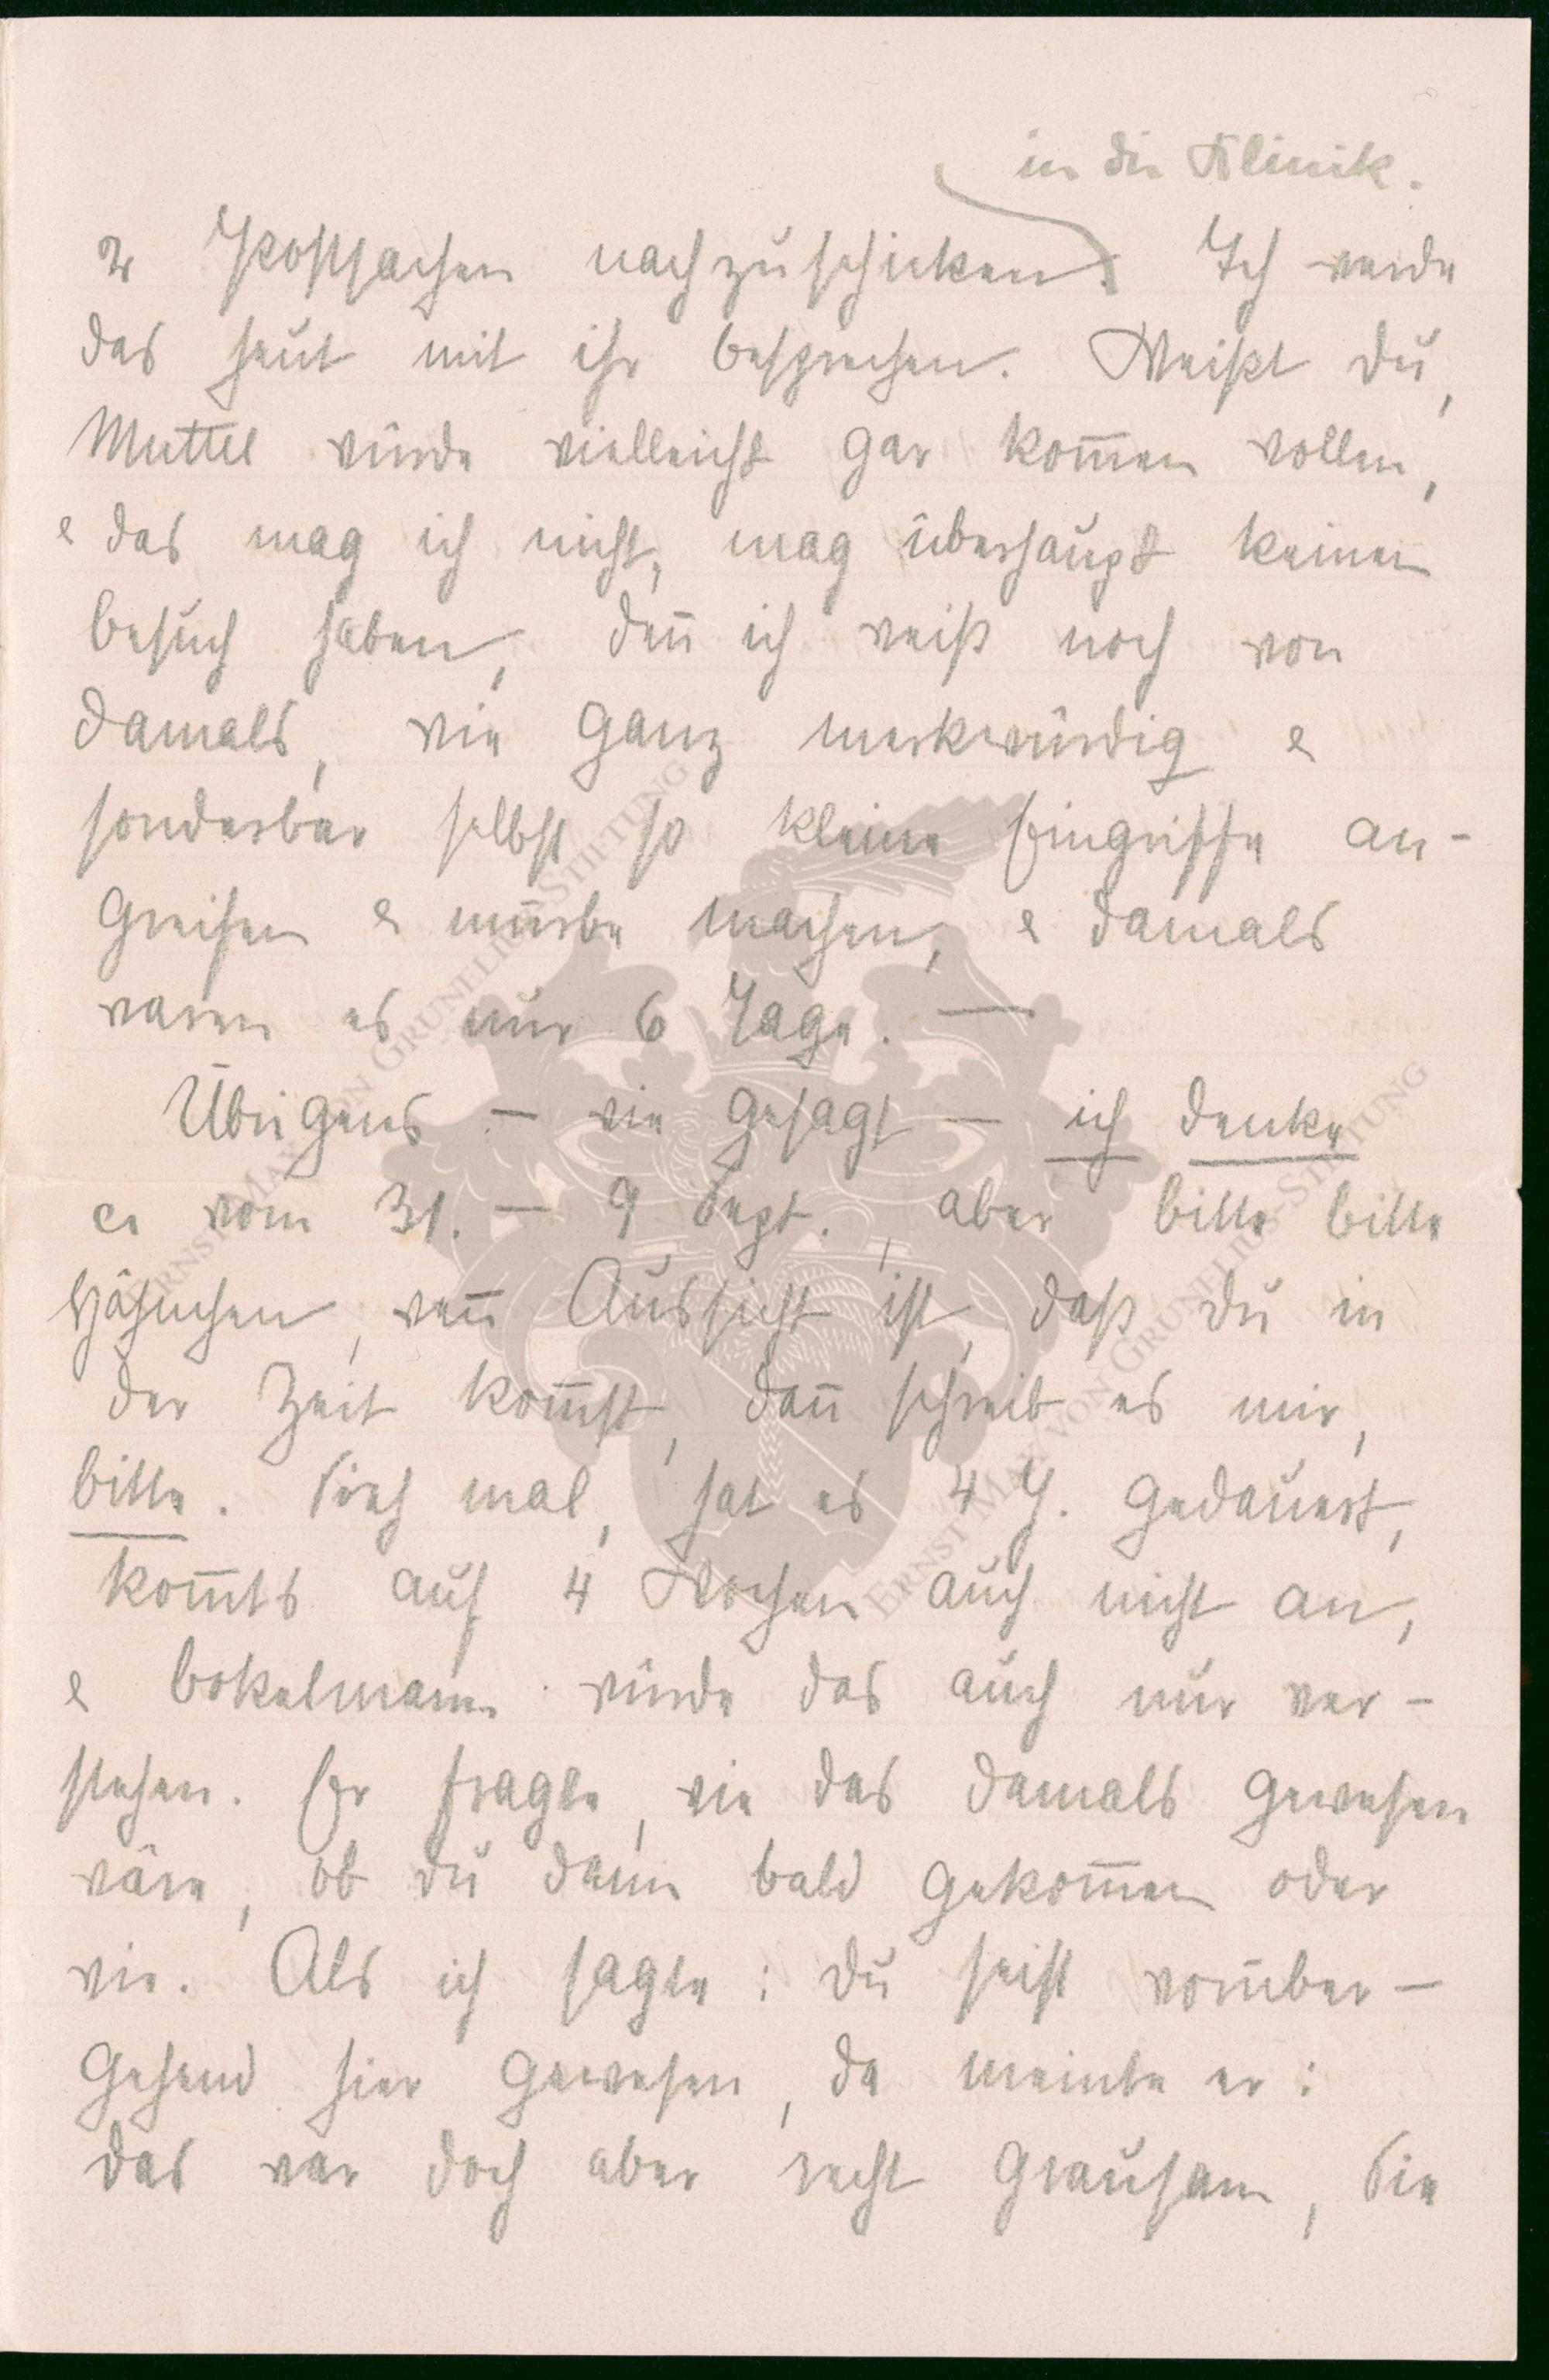 in die Klinik.
2 Postsachen nachzuschicken. Ich werde
das heut mit ihr besprechen. Weißt du,
Muttel würde vielleicht gar kom̅en wollen,
& das mag ich nicht, mag überhaupt keinen
Besuch haben, den̅ ich weiß noch von
damals, wie ganz merkwürdig &
sonderbar selbst so kleine Eingriffe an-
greifen & mürbe machen, & damals
waren es nur 6 Tage. —
Übrigens — wie gesagt — ich denke
ca vom 31. — 9 Sept., aber bitte bitte
Häschen, wen̅ Aussicht ist, daß du in
der Zeit kom̅st, dan̅ schreib es mir,
bitte. Sieh mal, hat es 4 J. gedauert,
kom̅ts auf 4 Wochen auch nicht an,
& Bokelmann würde das auch nur ver-
stehen. Er fragte, wie das damals gewesen
wäre, ob du denn bald gekom̅en oder
wie. Als ich sagte: du seist vorüber-
gehend hier gewesen, da meinte er:
das war doch aber recht grausam, Sie
ERNST MAX VON GRUNELIUS-STIFTUNG
ERNST MAX VON GRUNELIUS-STIFTUNG